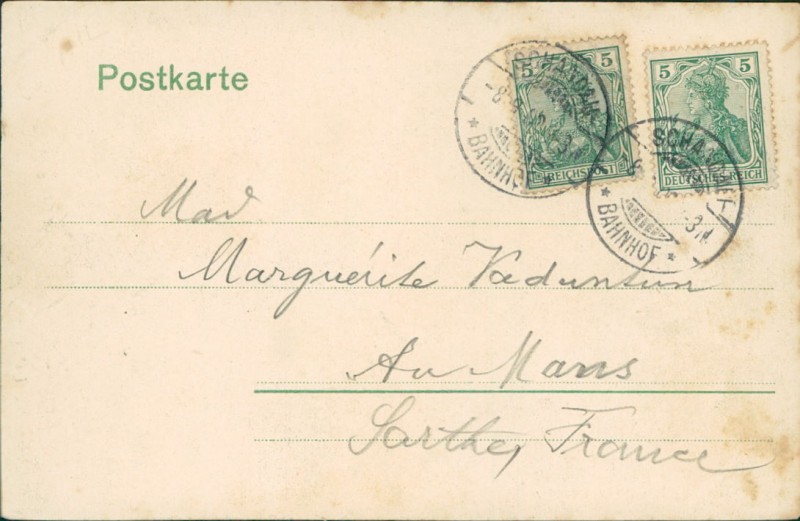 Postkarte
5 5
REICHSPOST
5 5
DEUTSCHES REICH
SCHANDAU
BAHNHOF
SCHANDAU
BAHNHOF
Mad
Marguérite
Au Mans
Sarthe, France